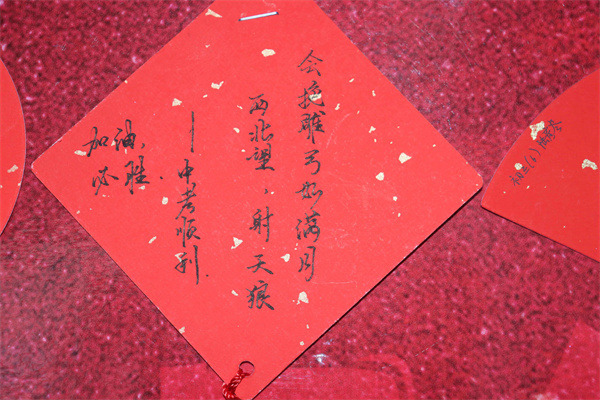 会挽雕弓如满月
西北望，射天狼
—中考顺利.
加油、
必胜.